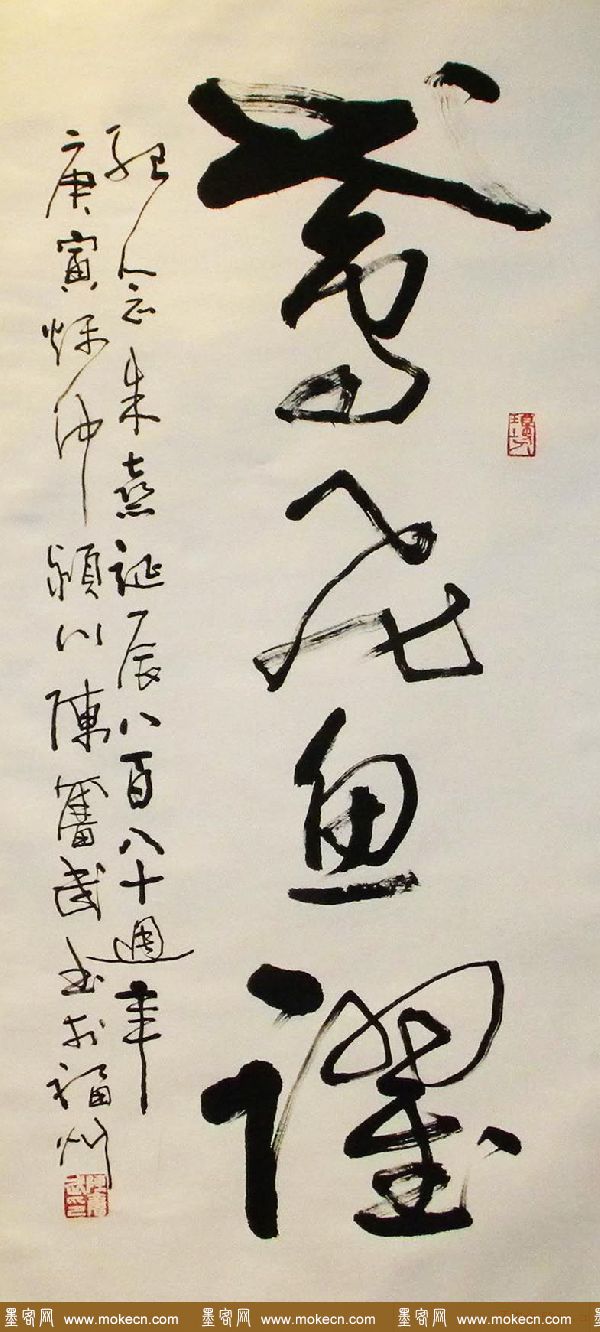 鸢飞鱼躍
纪念朱熹誕辰八百八十週年
庚寅烁仲潁川陳奮武书于福州
墨客网 www.mokecn.com 墨客网 www.mokecn.com 墨客网 www.mokecn.com 墨客网